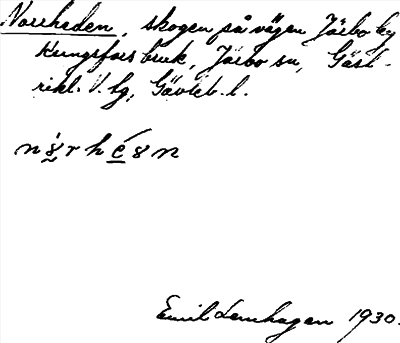 Norrheden, skogen på vägen Järbo by
Kungsfors bruk, Järbo sn, Gäst-
rikl. V. tg, Gävleb. l.
Emil Lenhagen 1930.